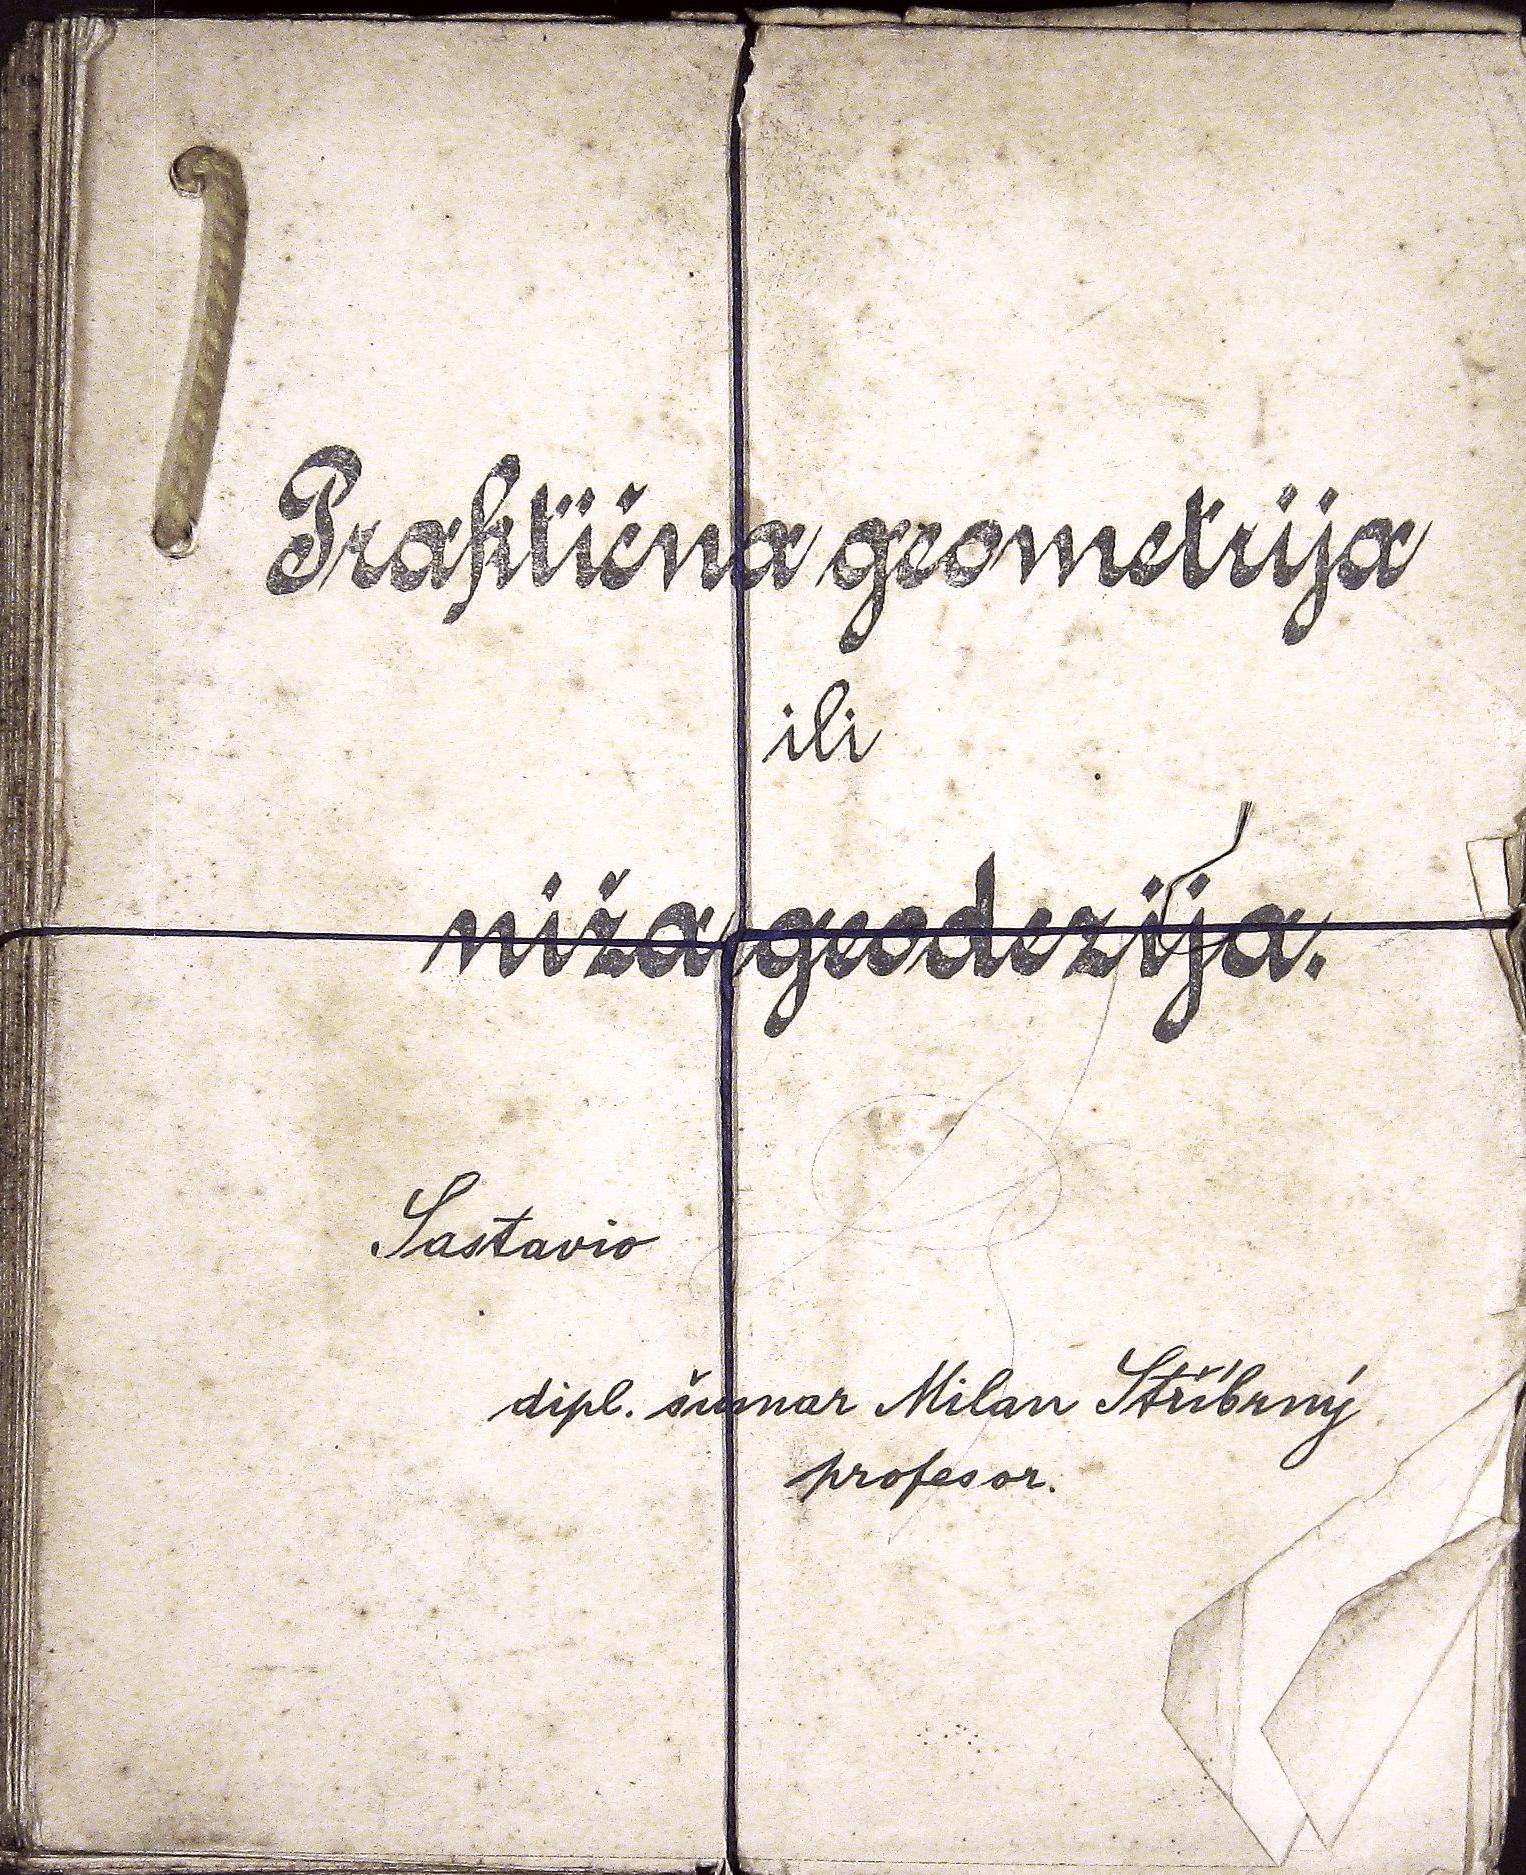 Praktična geometrija
ili
niža geodezija.
Sastavio
dipl. šumar Milan Stříbrný
profesor.